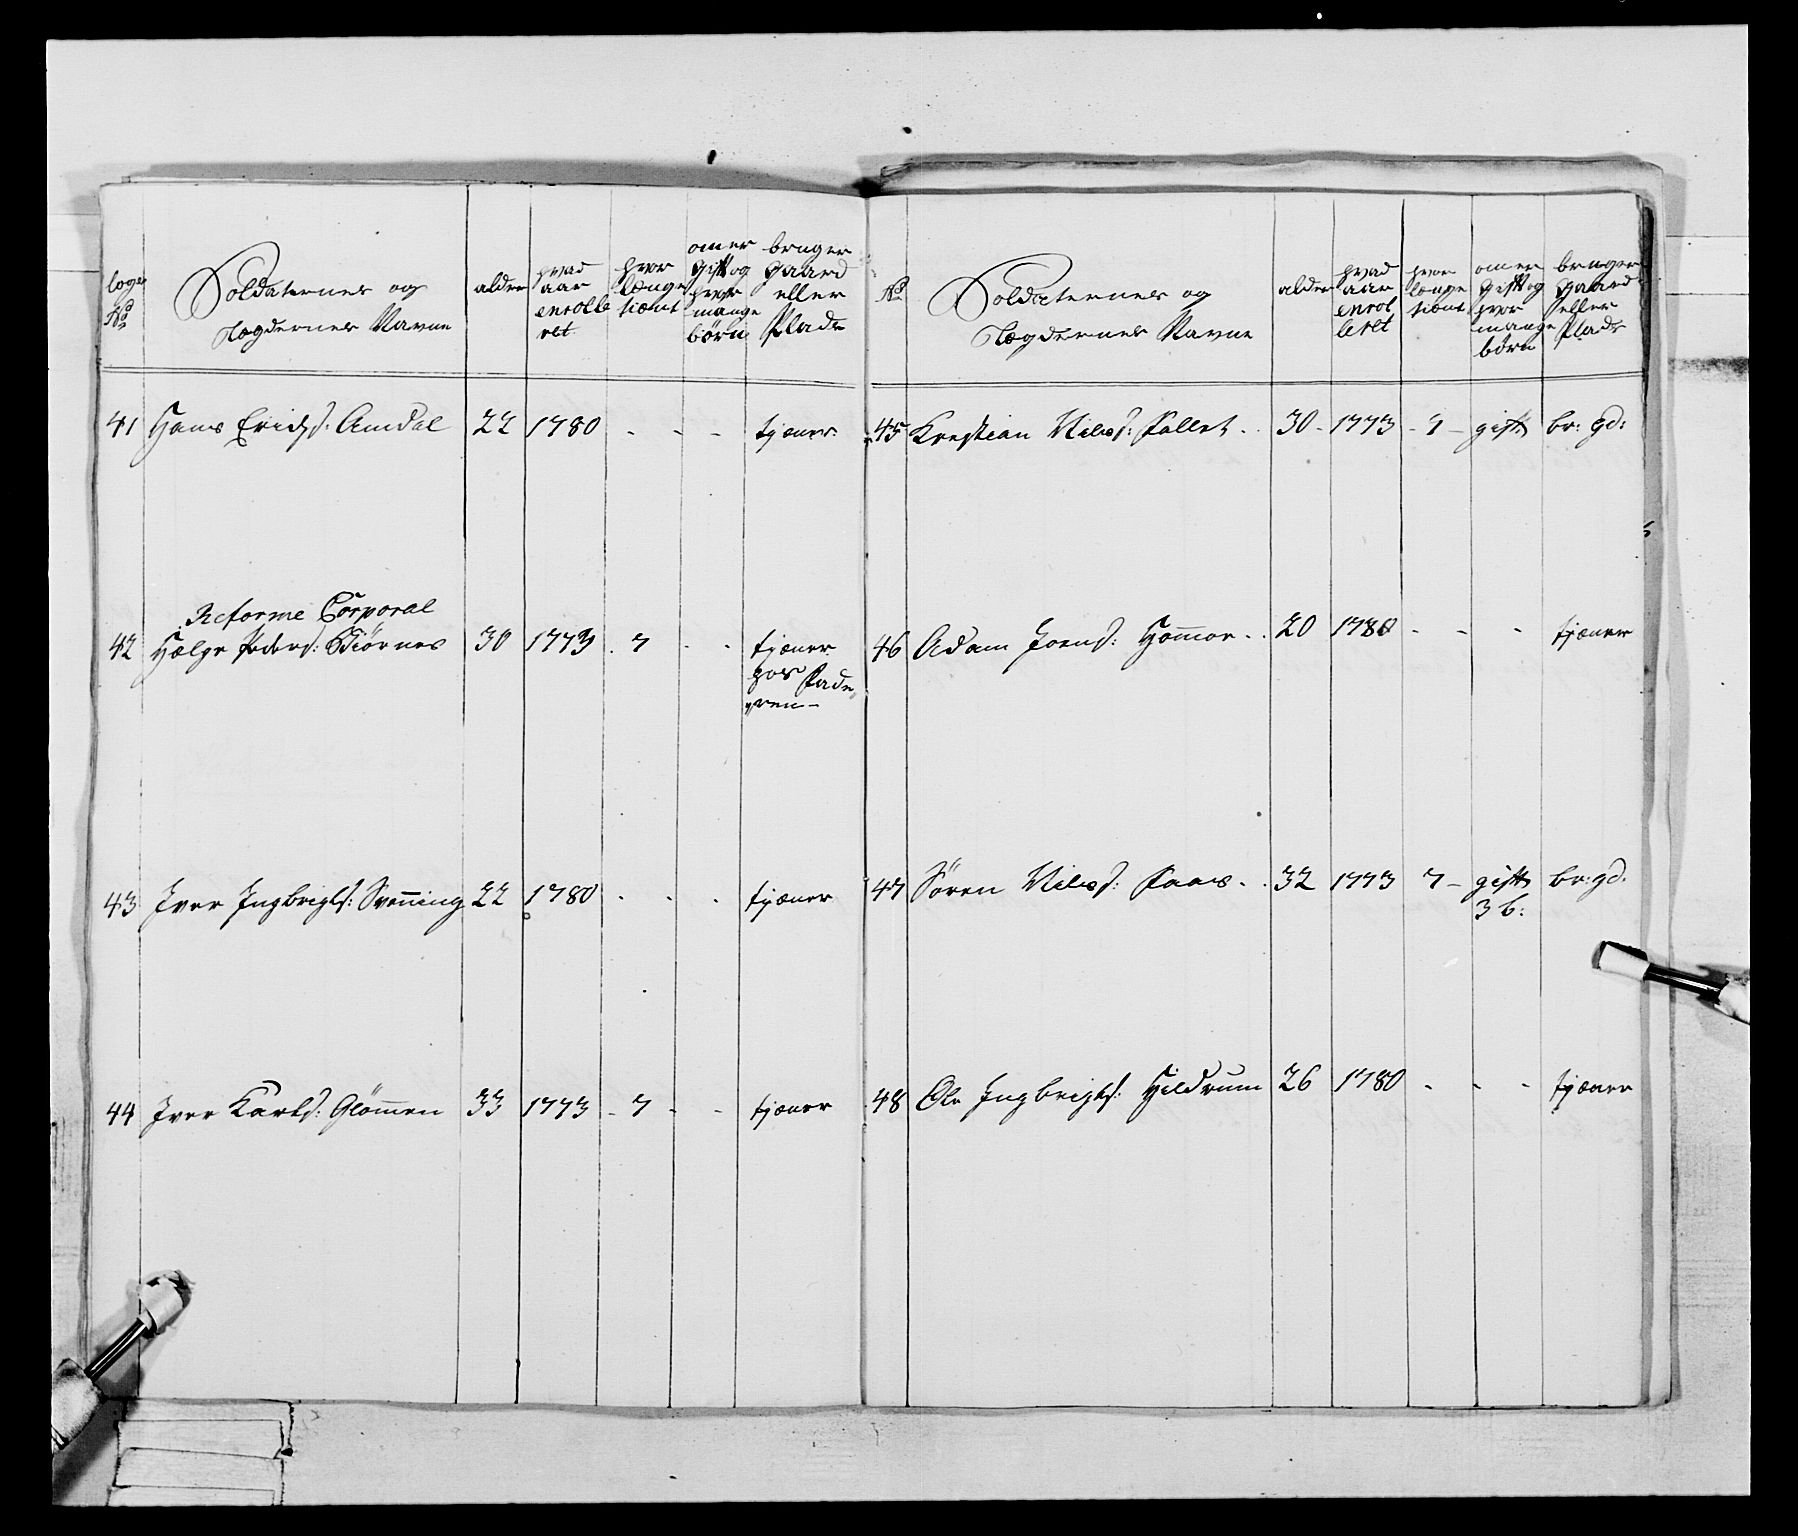 Lægs No
Soldaternes og
Lægdernes Navne
alder
hvad
aar
enrolle
ret
hvor
længe
tiænt
om er
Gift og
hvor
mange
børn
bruger
Gaard
eller
Plads
41 Hans Erichs: Amdal 22 1780 - - - tjæner
Reforme Corporal
42 Helge Peders: Biörnes 30 1773 . 7 - - tjæner
hos Fade
ren -
43 Iver Ingbrigts: Svenning 22 1780 - - - tjæner
44 Iver Karls: Glömmen 33 1773 - 7 - - tjæner
No
Soldaternes og
Lægdernes Navne
alder
hvad
aar
enrol
leret
hvor
længe
tiænt
om er
Gift og
hvor
mange
børn
bruger
Gaard
eller
Plads
45 Krestian Nils: Follet . 30 - 1773 - 7 - gift br: gd:
46 Adam Joens: Hommor . . 20 1780 - - - tjæner
47 Sören Nils: Faas . . 32 1773 7 - gift br: gd.
3 b:
48 Ole Ingbrigts: Hildrum 26 1780 - - - tjæner